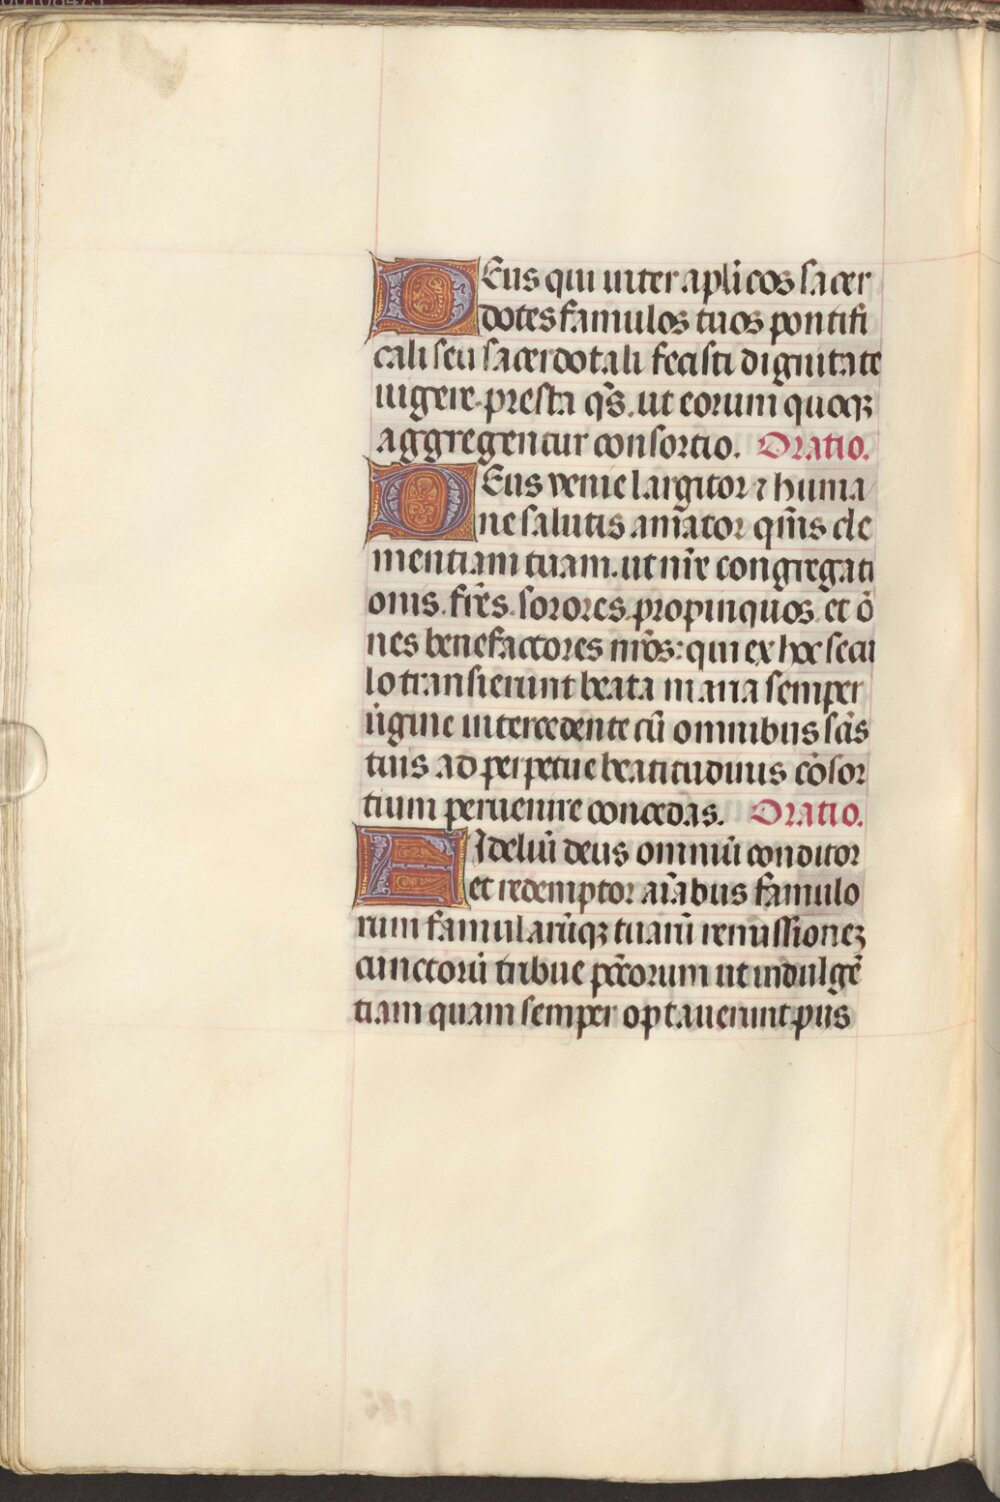 Deus qui inter apl̃icos sacer
dotes famulos tuos pontifi
cali seu sacerdotali fecisti dignitate
uigere. presta q̃s. ut eorum quoqꝫ
aggregentur consortio. Oratio.
Deus venie largitor ⁊ huma
ne salutis amator qm̃s cle
mentiam tuam. ut nr̃e congregati
onis. fr̃es. sorores. propinquos. et õ
nes benefactores nr̃os: qui ex hoc secu
lo transierunt beata maria semper
ũgine intercedente cũ omnibus sc̃is
tuis ad perpetue beatitudinis cõsor
tium peruenire concedas. Oratio.
Fidelium deus omniũ conditor
et redemptor aĩabus famulo
rum famularũqꝫ tuarũ remissionez
cunctorũ tribue pc̃corum ut indulgẽ
tiam quam semper optauerunt. piis